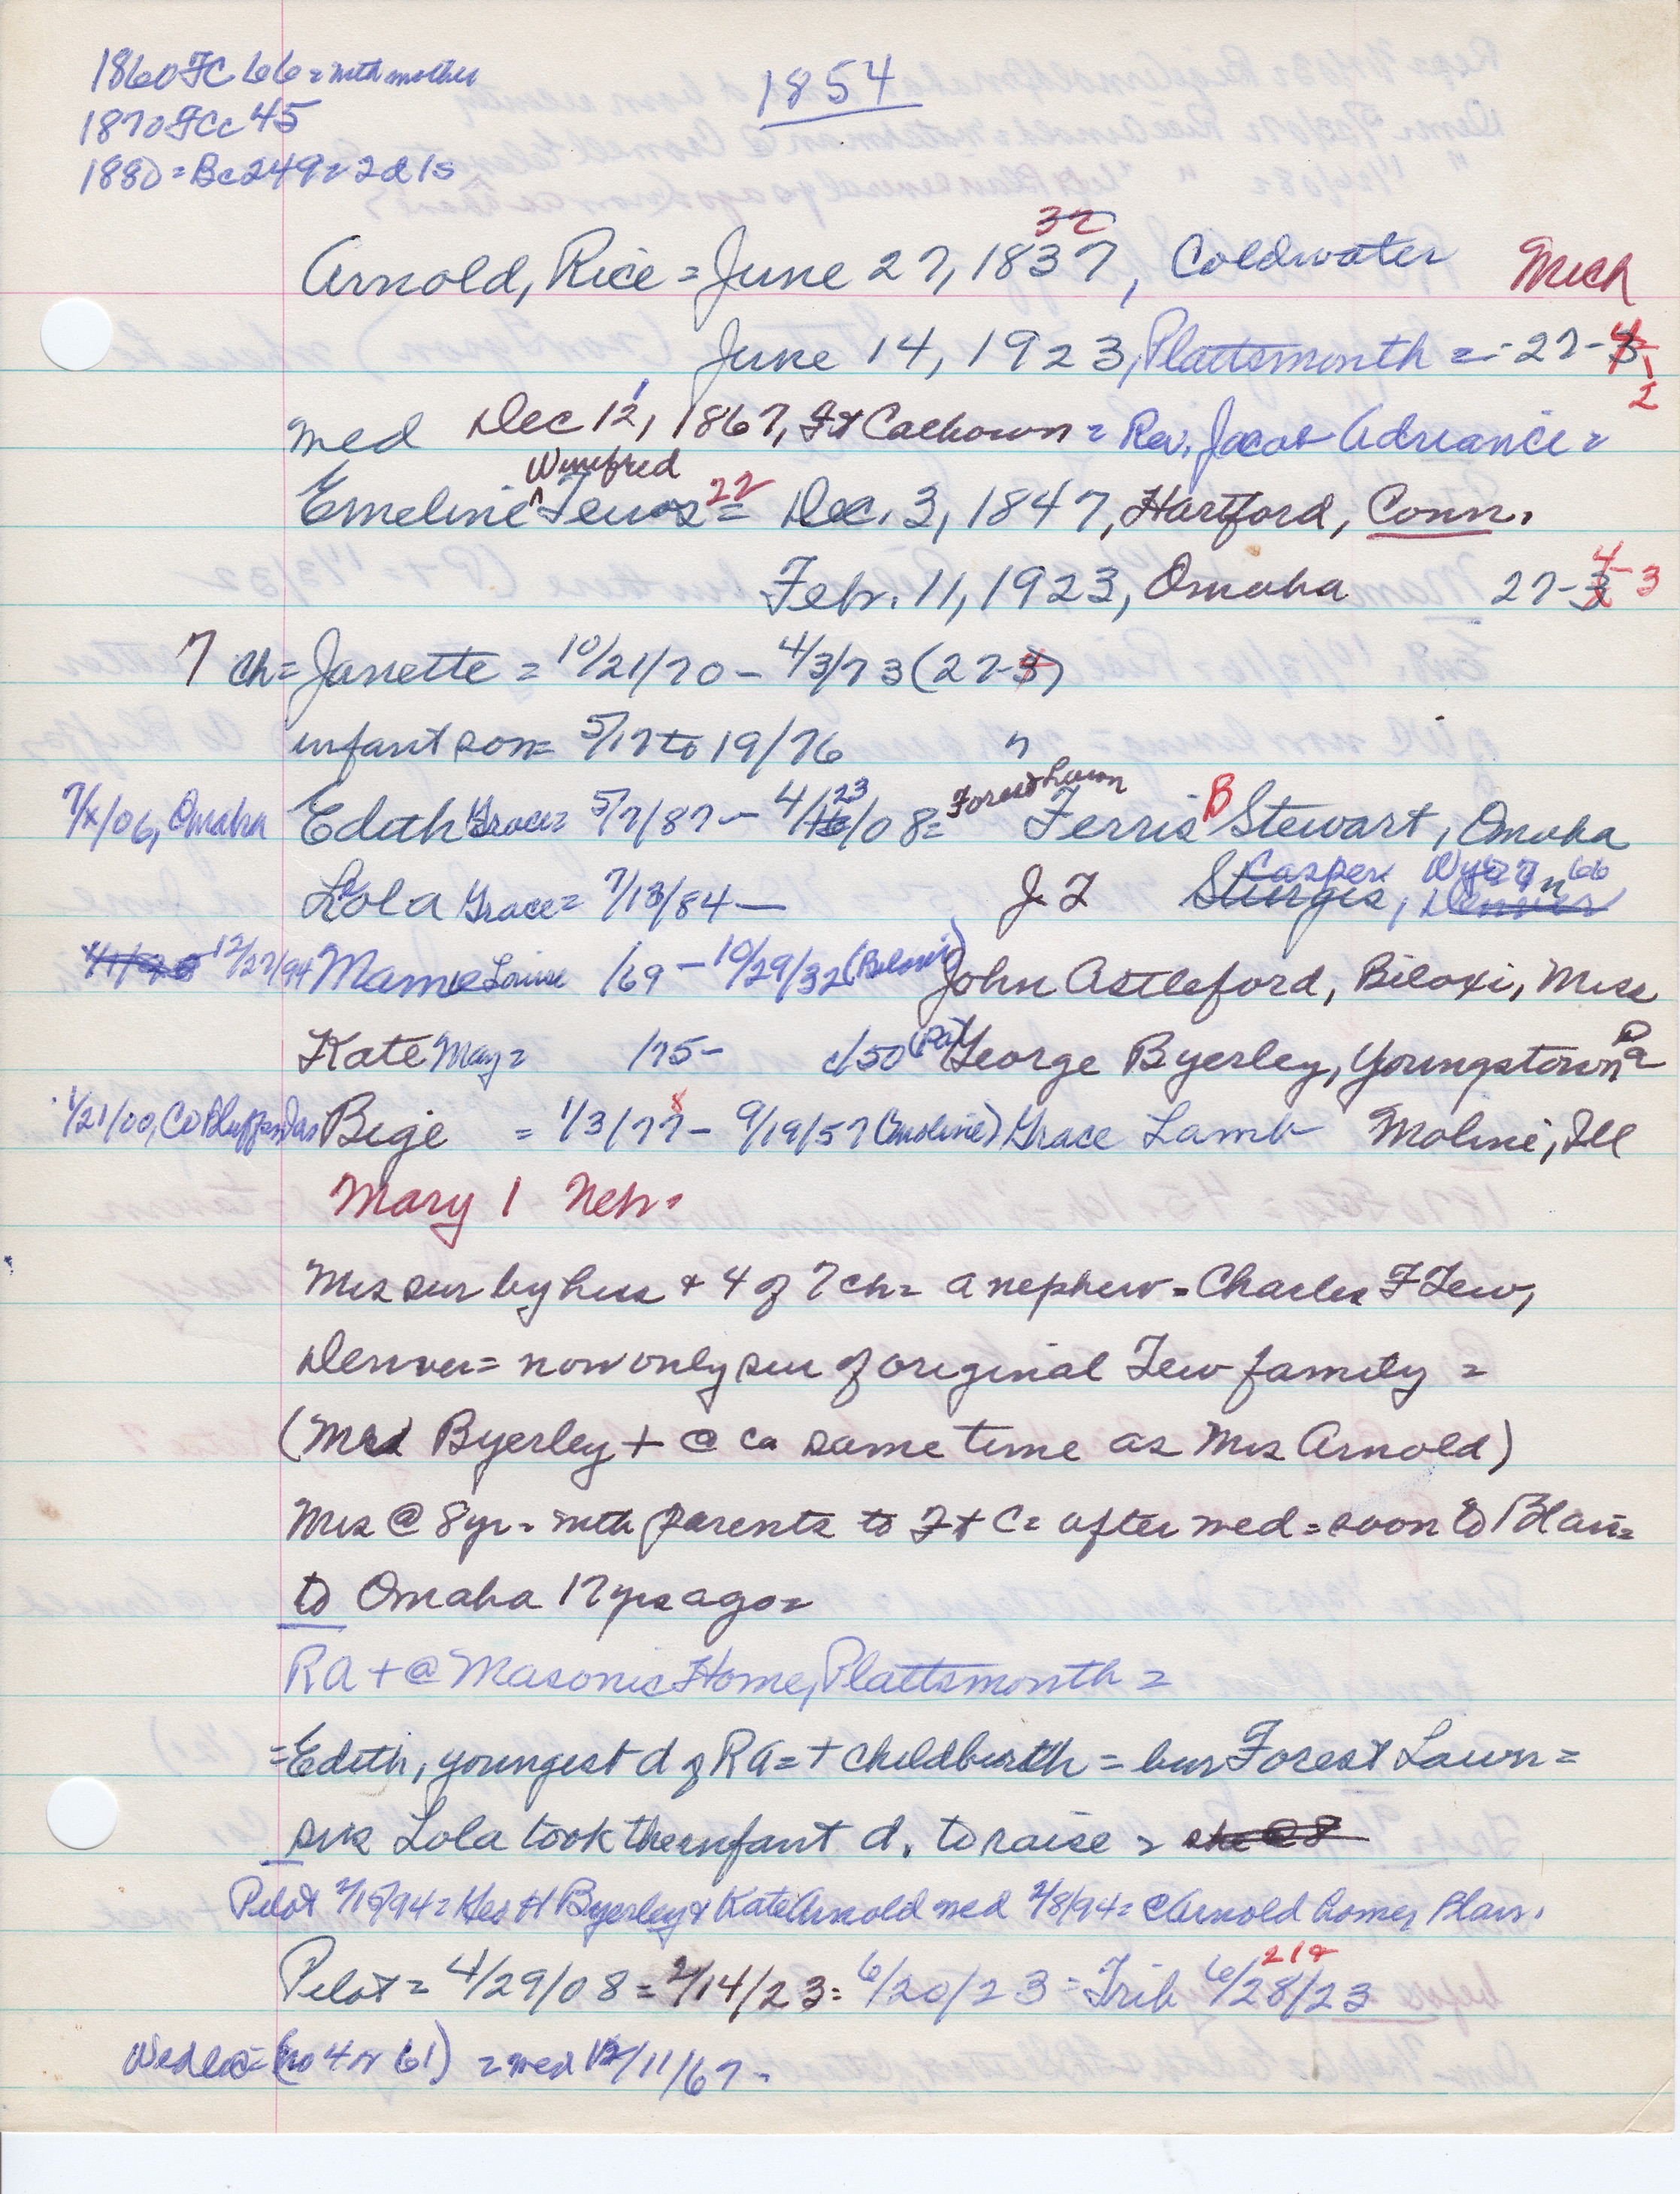 1860 FC 66 = with mother
1870 FCc 45
1880 = Bc 249 = 2d 1s
1854
32
Arnold, Rice = June 27, 1837, Coldwater Mich
June 14, 1923, Plattsmouth = 27-
med Dec 12, 1867, Ft Calhoun = Rev. Jacob Adriance =
Winifred
Emeline Tew 22 = Dec. 3, 1847, Hartford, Conn.
4
Feb. 11, 1923, Omaha 27-3 3
7 ch = Janette = 10/21/70 – 4/3/73 (27-3)
infant son = 5/17 to 19/76 "
7/x/06, Omaha Edith Grace = 5/7/87 – 4/23/08 = Forest Lawn Ferris B Stewart, Omaha
Casper Wyo
Lola Grace = 7/13/84 — J. T Sturgis, Denver
12/27/94 Mame Louise /69 – 10/29/32 (Biloxi) John Astleford, Biloxi, Miss
Kate May = /75 – c/50 (Pa) George Byerley, Youngstown Pa
1/21/00, Co Bluffs, Ias Bige = 1/3/77 8 – 9/19/57 (Moline) Grace Lamb Moline, Ill
Mary 1 Neb.
Mrs sur by hus + 4 of 7 ch = a nephew = Charles F Tew,
Denver = now only sur of original Tew family =
(Mrs Byerley + @ ca same time as Mrs Arnold)
Mrs @ 8 yr = with parents to Ft C = after med = soon to Blair =
to Omaha 17 yrs ago =
RA + @ Masonic Home, Plattsmouth =
= Edith, youngest d of RA = + childbirth = bur Forest Lawn =
sis Lola took the infant d. to raise = she @ 8
Pilot 2/15/94 = Geo H Byerley & Kate Arnold med 2/8/94 = @ Arnold home, Blair.
21
Pilot = 4/29/08 = 2/14/23 = 6/20/23 = Trib 6/28/23
(no 4 or 61) = med 12/11/67 -